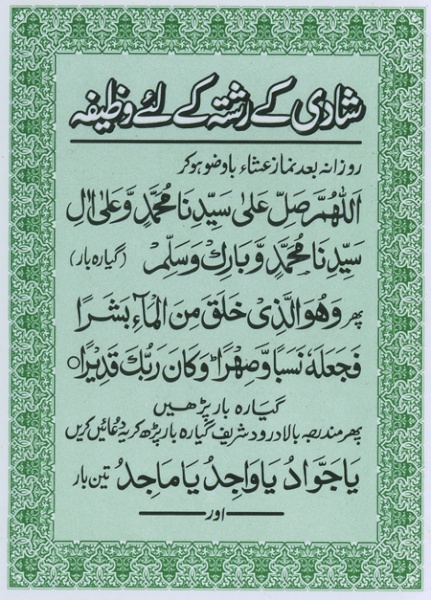 شادی کے رشتہ کے لئے وظیفہ
روزانہ بعد نماز عشاء باوضو ہوکر
اَللّٰهُمَّ صَلِّ عَلٰی سَیِّدِنَا مُحَمَّدٍ وَّ عَلٰی اٰلِ
سَیِّدِنَا مُحَمَّدٍ وَّ بَارِكْ وَسَلِّمْ (گیارہ بار)
پھر وَهُوَ الَّذِیْ خَلَقَ مِنَ الْمَآءِ بَشَرًا
فَجَعَلَهٗ نَسَبًا وَّصِهْرًا ؕ وَكَانَ رَبُّكَ قَدِیْرًا ○
گیارہ بار پڑھیں
پھر مندرجہ بالا درود شریف گیارہ بار پڑھ کر یہ دُعائیں کریں
یَا جَوَّادُ یَا وَاجِدُ یَا مَاجِدُ تین بار
اور